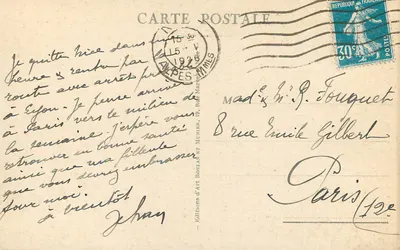 CARTE POSTALE
Je quitte Nice dans
heure & rentre par
route avec arrêt
à Lyon. Je pense
à Paris vers le milieu de
la semaine. J'espère vous
retrouver en bonne santé
ainsi que ma filleule
que vous devez embrasser
pour moi.
à bientôt
Jehan
15
15 - V
1926
ALPES-MMES
30c
Mad. & Mr R. Fouquet
8 rue Emile Gilbert
Paris
(12e